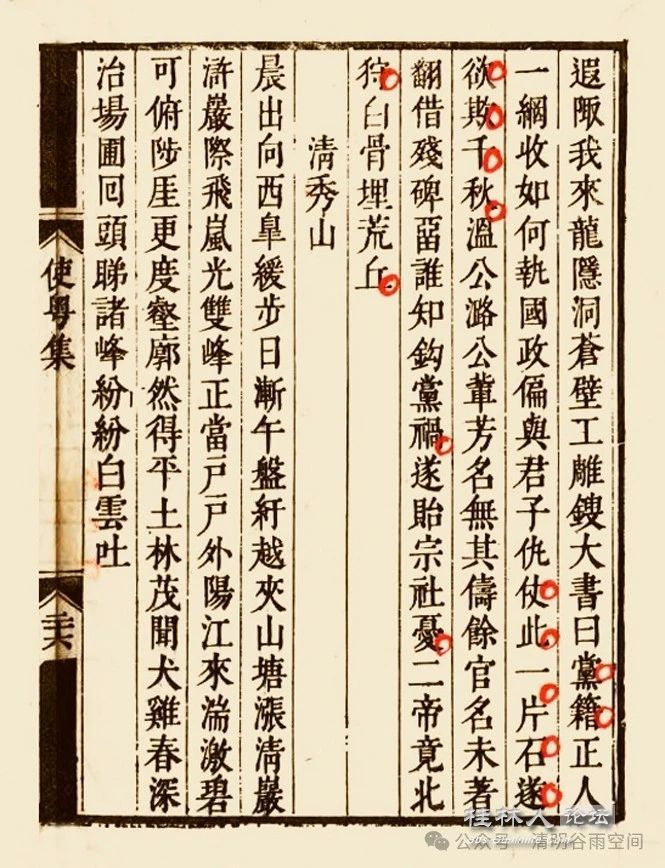 遐陬我來龍隱洞蒼壁工雕鎪大書曰黨籍正人
一網收如何執國政偏與君子仇仗此一片石遂
欲欺千秋溫公潞公輩芳名無其儔餘官名未著
翻借殘碑畱誰知鈎黨禍遂貽宗社憂二帝竟北
狩白骨埋荒丘
清秀山
晨出向西皐緩步日漸午盤紆越夾山塘漲清巖
滸巖際飛嵐光雙峰正當戸戸外陽江來湍激碧
可俯陟厓更度壑廓然得平土林茂聞犬雞春深
治場圃囘頭睇諸峰紛紛白雲吐
使粤集
桂林人论坛
公众号 · 清明谷雨空间